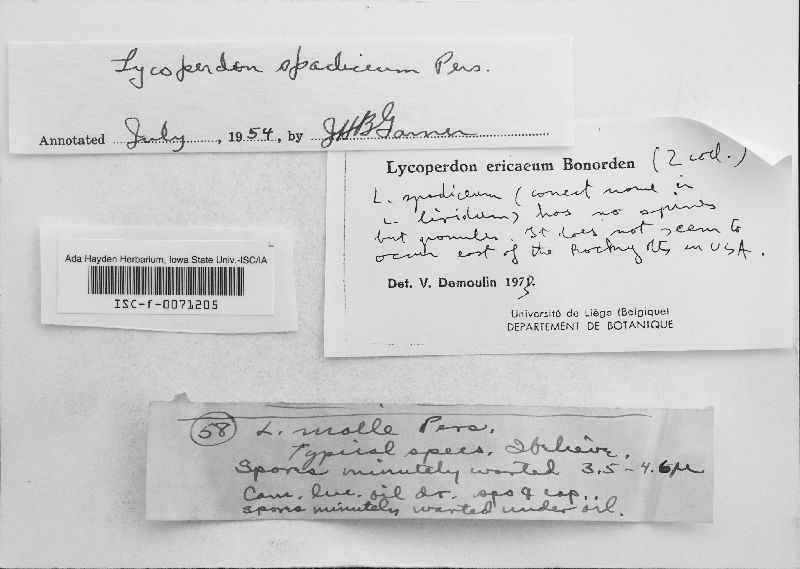 Lycoperdon spadiceum Pers.
Annotated July, 1954, by JHB Garner
Lycoperdon ericaeum Bonorden (2 cod.)
L. spadiceum (correct name in
L. lividum) has no spines
but granules. It does not seem to
occur east of the Rocky Mts in USA.
Det. V. Demoulin 1973.
Université de Liège (Belgique)
DEPARTEMENT DE BOTANIQUE
Ada Hayden Herbarium, Iowa State Univ.-ISC/IA
ISC-f-0071205
58 L. molle Pers.
Typical specs. I believe.
Spores minutely warted 3.5-4.6µ
Cam. luc. oil dr. sps & cap.
spores minutely warted under oil.